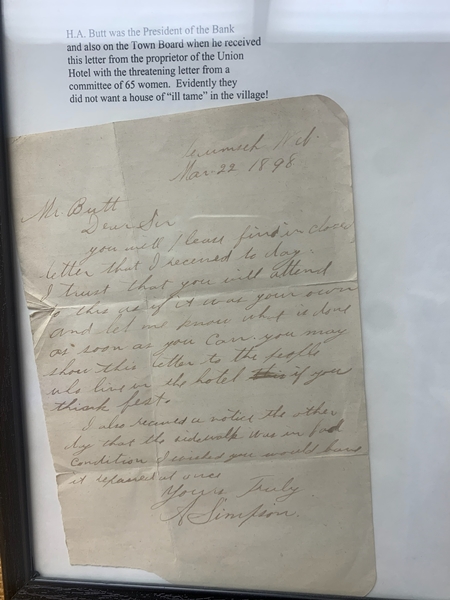 H.A. Butt was the President of the Bank
and also on the Town Board when he received
this letter from the proprietor of the Union
Hotel with the threatening letter from a
committee of 65 women. Evidently they
did not want a house of "ill tame" in the village!
Tecumseh Neb.
Mar-22 1898
Mr. Butt
Dear Sir
you will Please find in closed
letter that I received to day.
I trust that you will attend
to this as if it was your own
and let me know what is done
as soon as you can. you may
show this letter to the people
who live in the hotel this if you
think best.
I also received a notice the other
day that the sidewalk was in bad
condition I wish you would have
it repaired at once
Yours Truly
A Simpson.